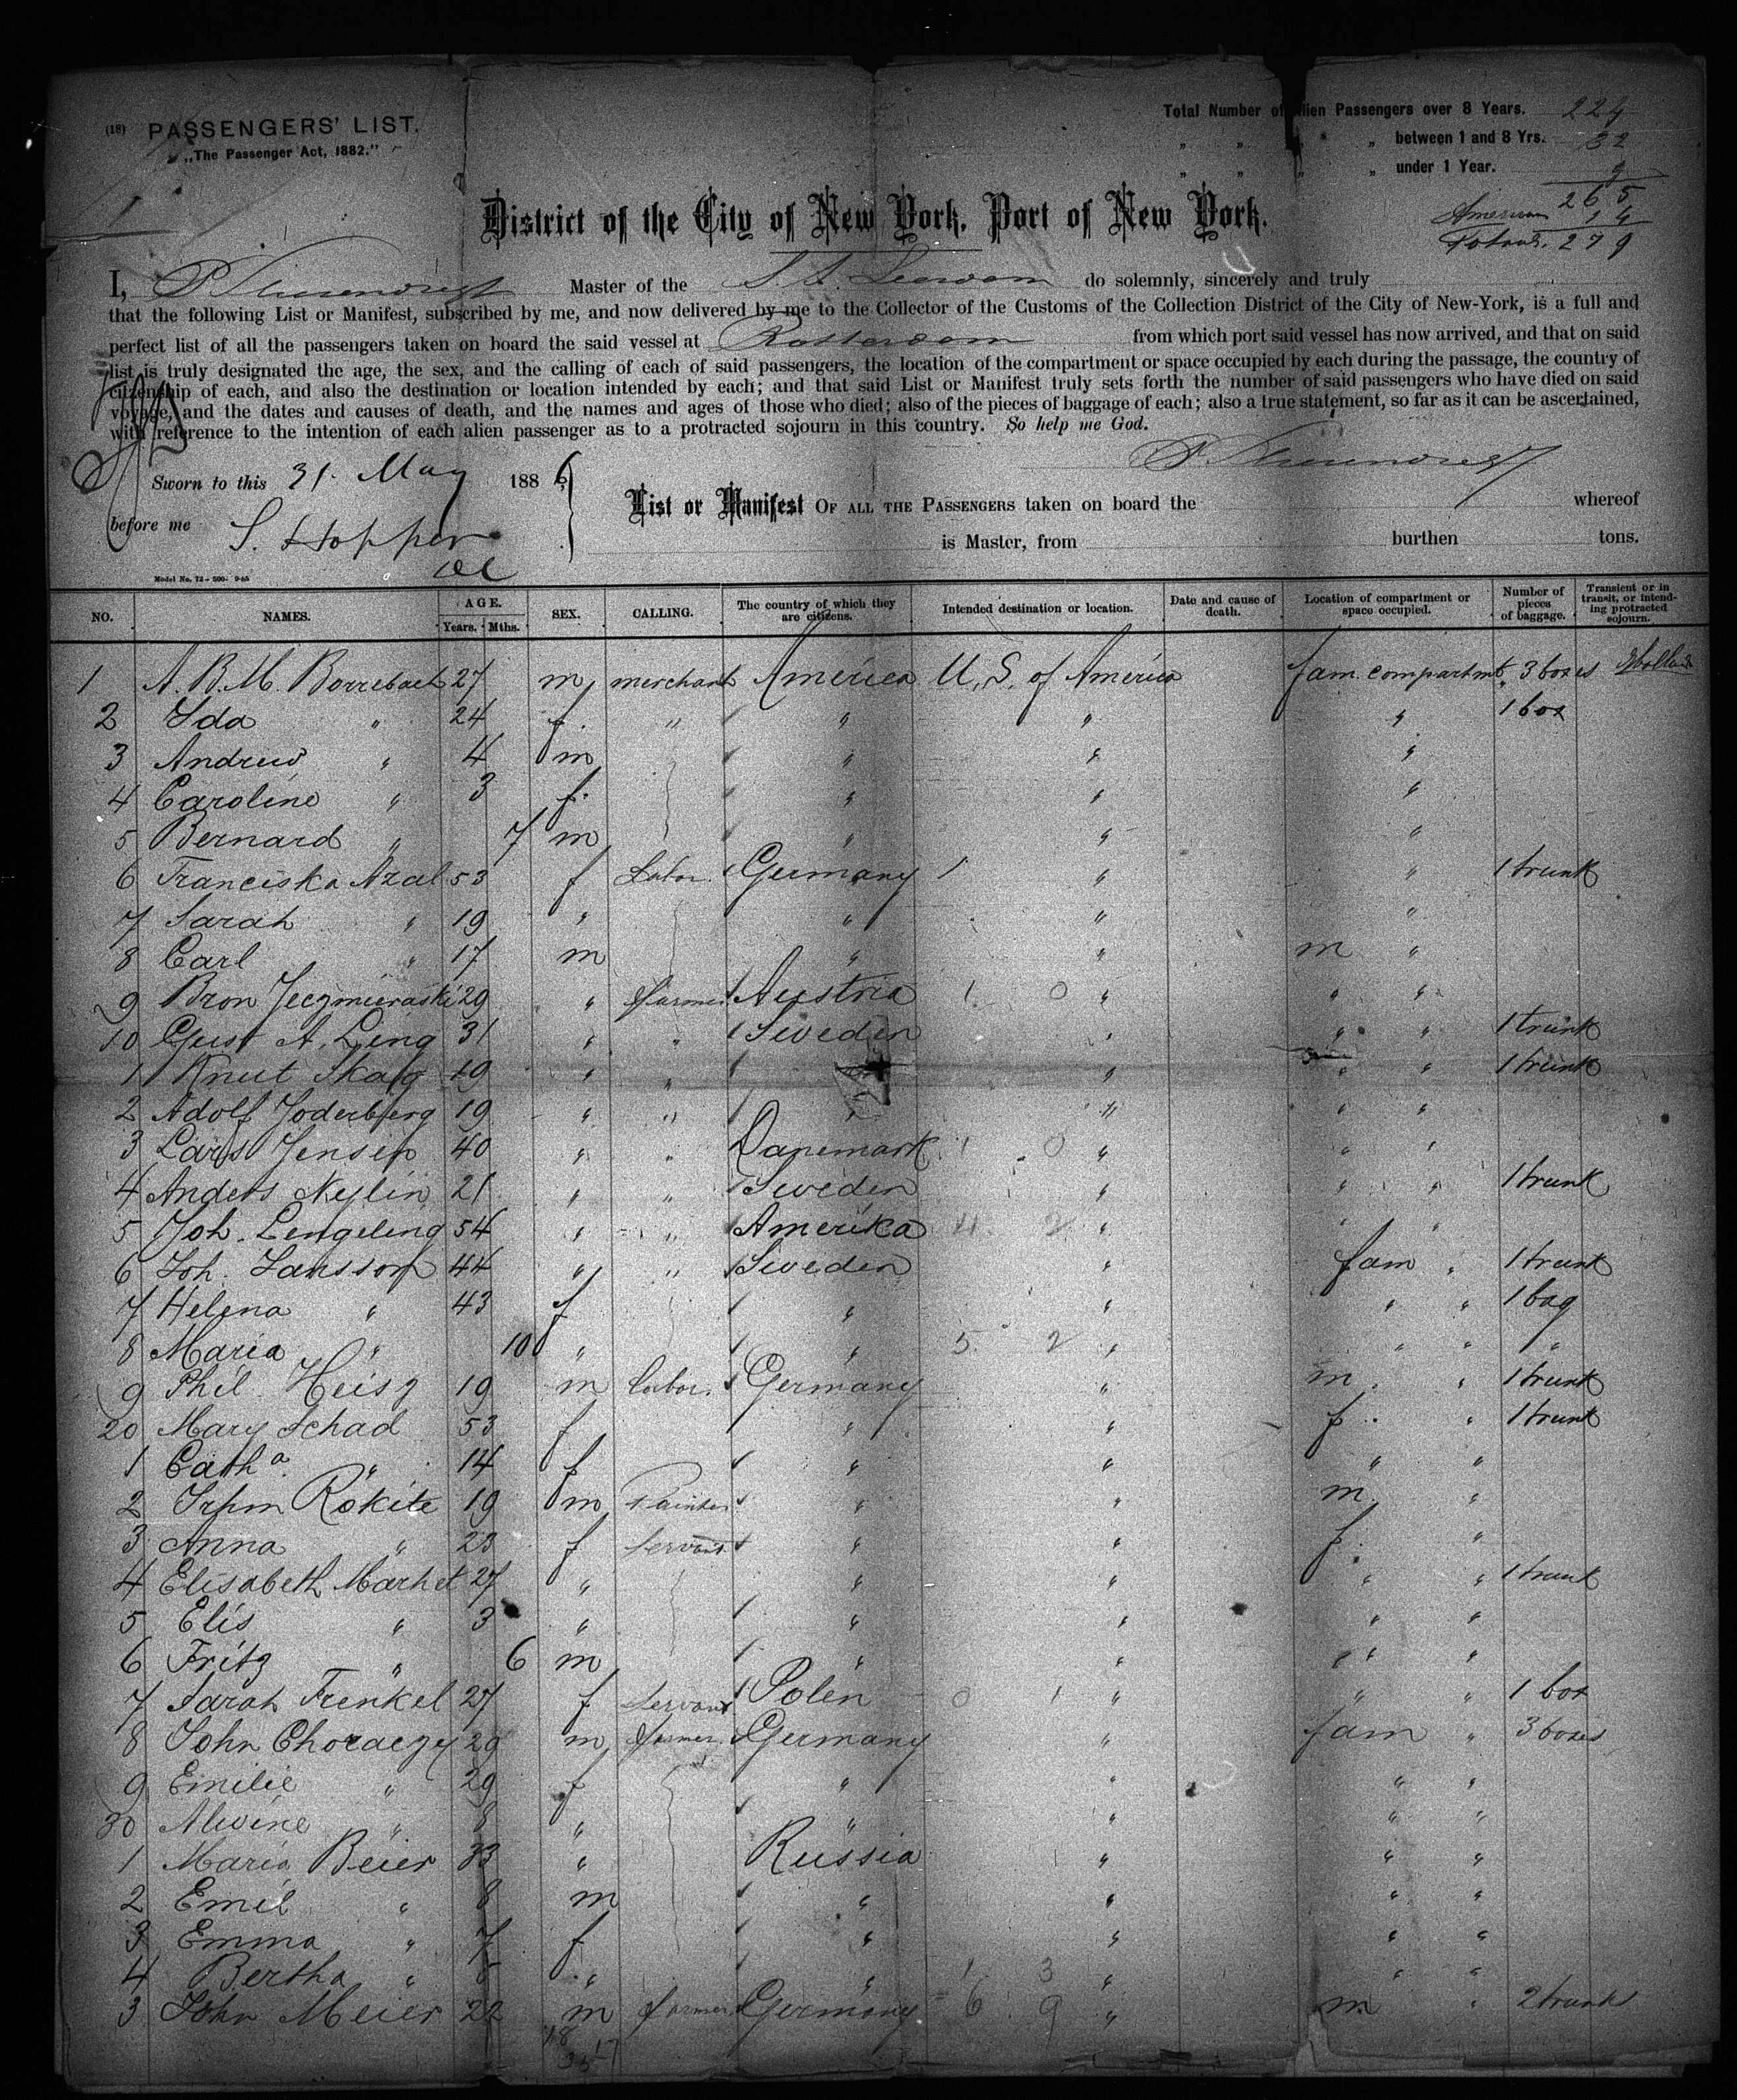 (18) PASSENGERS' LIST.
„The Passenger Act, 1882."
Total Number of Alien Passengers over 8 Years. 224
„ „ „ „ between 1 and 8 Yrs. 32
„ „ „ „ under 1 Year. 9
265
American 14
Totaal. 279
District of the City of New York, Port of New York.
I, Master of the S.S. Leerdam do solemnly, sincerely and truly
that the following List or Manifest, subscribed by me, and now delivered by me to the Collector of the Customs of the Collection District of the City of New-York, is a full and
perfect list of all the passengers taken on board the said vessel at Rotterdam from which port said vessel has now arrived, and that on said
list is truly designated the age, the sex, and the calling of each of said passengers, the location of the compartment or space occupied by each during the passage, the country of
citizenship of each, and also the destination or location intended by each; and that said List or Manifest truly sets forth the number of said passengers who have died on said
voyage, and the dates and causes of death, and the names and ages of those who died; also of the pieces of baggage of each; also a true statement, so far as it can be ascertained,
with reference to the intention of each alien passenger as to a protracted sojourn in this country. So help me God.
Sworn to this 31. May 1886
before me S. Hopper
List or Manifest OF ALL THE PASSENGERS taken on board the whereof
is Master, from burthen tons.
Model No. 72 - 500- 9-85
NO. NAMES. AGE. Years. Mths. SEX. CALLING. The country of which they are citizens. Intended destination or location. Date and cause of death. Location of compartment or space occupied. Number of pieces of baggage. Transient or in transit, or intending protracted sojourn.
1 A. B. M. Borrebach 27 m merchant America U. S. of America fam. compartmt. 3 boxes Holland
2 Ida " 24 f. " " " " 1 box
3 Andrew " 4 m " " "
4 Caroline " 3 f. " " "
5 Bernard " 7 m " " "
6 Franciska Azal 53 f Labor. Germany 1 " " 1 trunk
7 Sarah " 19 " " " "
8 Carl " 17 m " " m "
9 Bron Jeczmieraski 29 " farmer Austria 1 0 " " "
10 Gust A. Ling 31 " " Sweden " " " 1 trunk
1 Knut Skag 19 " " " " " 1 trunk
2 Adolf Joderberg 19 " " " " " "
3 Lars Jensen 40 " " Danemark 1 0 " " "
4 Anders Neylin 21 " " Sweden " " " 1 trunk
5 Joh. Lengeling 54 " " Amerika 4 2 " " "
6 Joh. Jansson 44 " " Sweden " fam " 1 trunk
7 Helena " 43 f " " " " 1 bag
8 Maria " 10 " " 5 2 " " " 1 "
9 Phil. Heisz 19 m Labor. Germany " m " 1 trunk
20 Mary Schad 53 f " " f " 1 trunk
1 Cath a. " 14 f " " " "
2 Rokite 19 m Painter " " m "
3 Anna " 23 f Servant " " f "
4 Elisabeth Marhet 27 " " " " " 1 trunk
5 Elis " 3 " " " " "
6 Fritz " 6 m " " " "
7 Sarah Frenkel 27 f Servant Polen 0 1 " " " 1 box
8 John Choraczy 29 m farmer Germany " fam " 3 boxes
9 Emilie " 29 f " " " "
30 Alwine " 8 " " " " "
1 Maria Beier 33 " Russia 1 " " "
2 Emil " 8 m " " " "
3 Emma " 7 f " " " "
4 Bertha " 5 " " 1 3 " " "
3 John Meier 22 m farmer Germany 6 9 " m " 2 trunks
18 17
35